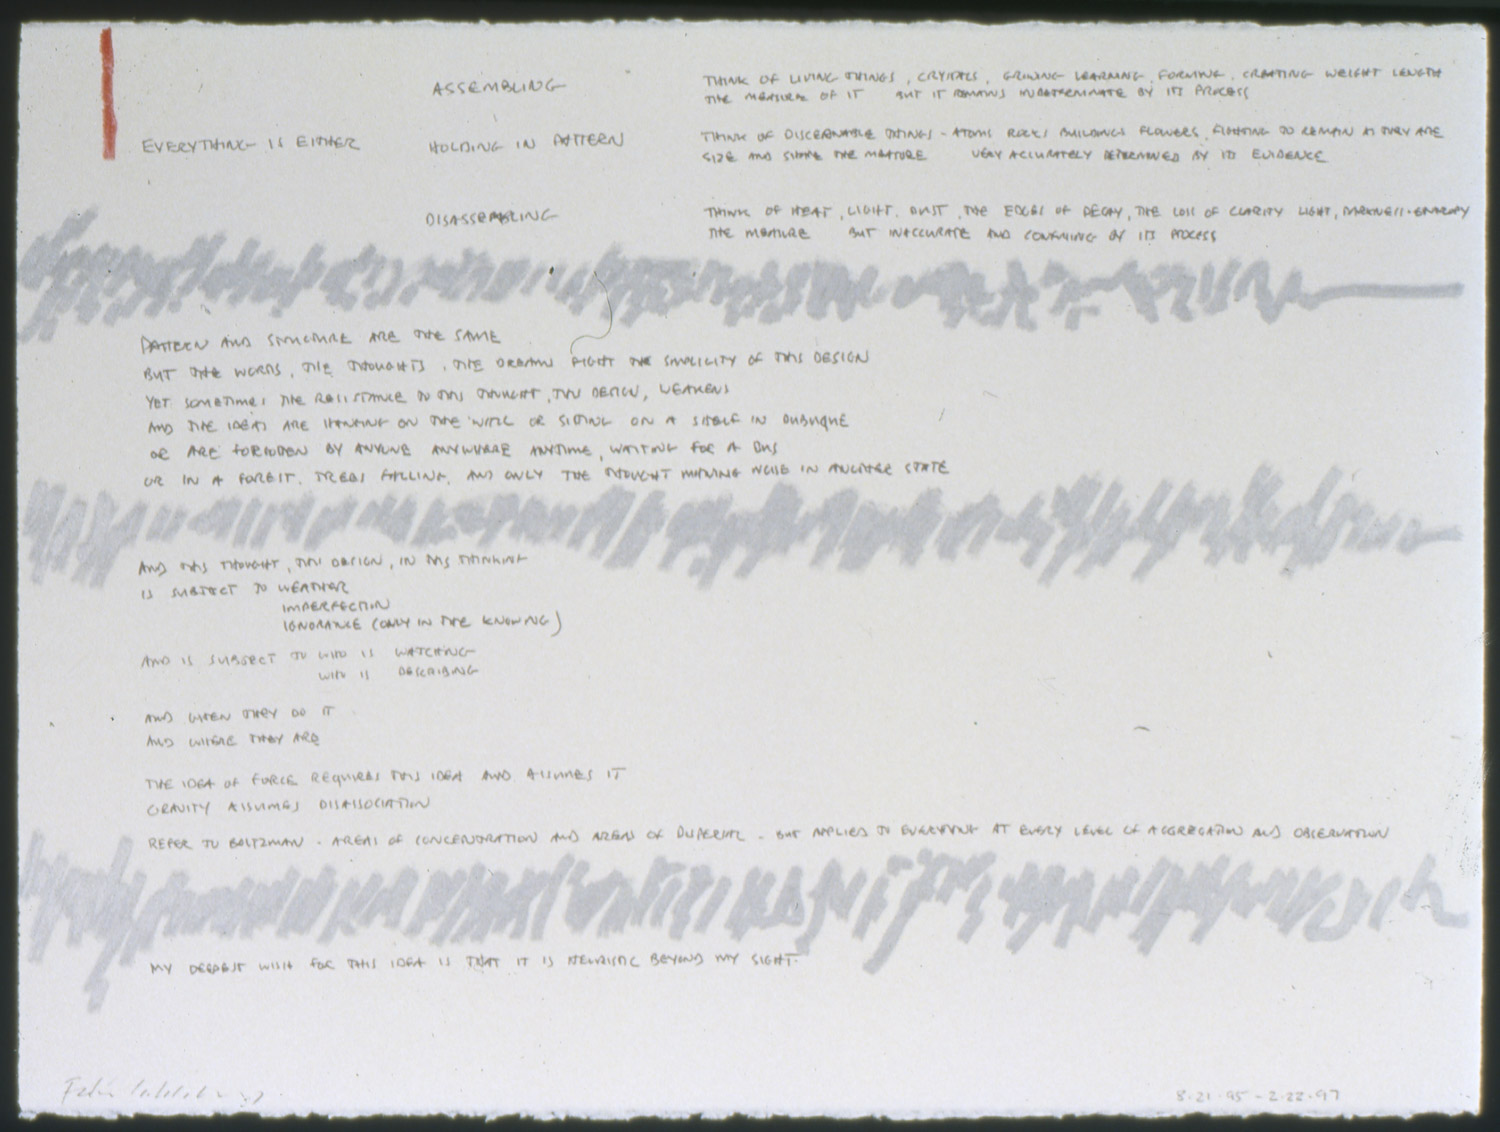 ASSEMBLING
THINK OF LIVING THINGS, CRYSTALS, GROWING LEARNING, FORMING, CREATING WEIGHT LENGTH
THE MEASURE OF IT BUT IT REMAINS INDETERMINATE BY ITS PROCESS
EVERYTHING IS EITHER
HOLDING IN PATTERN
THINK OF DISCERNABLE THINGS - ATOMS ROCKS BUILDINGS FLOWERS, FIGHTING TO REMAIN AS THEY ARE
SIZE AND SHAPE THE MEASURE VERY ACCURATELY DETERMINED BY ITS EVIDENCE
DISASSEMBLING
THINK OF HEAT, LIGHT, DUST, THE EDGES OF DECAY, THE LOSS OF CLARITY LIGHT, DARKNESS - ENTROPY
THE MEASURE BUT INACCURATE AND CONFUSING BY ITS PROCESS
PATTERN AND STRUCTURE ARE THE SAME
BUT THE WORDS, THE THOUGHTS, THE DREAMS FIGHT THE SIMPLICITY OF THIS DESIGN
YET SOMETIMES THE RESISTANCE TO THIS THOUGHT, THIS DESIGN, WEAKENS
AND THE IDEAS ARE HANGING ON THE WALL OR SITTING ON A SHELF IN DUBUQUE
OR ARE FORBIDDEN BY ANYONE ANYWHERE ANYTIME, WAITING FOR A BUS
OR IN A FOREST, TREES FALLING, AND ONLY THE THOUGHT MAKING NOISE IN ANOTHER STATE
AND THIS THOUGHT, THIS DESIGN, IN THIS THINKING
IS SUBJECT TO WEATHER
IMPERFECTION
IGNORANCE (ONLY IN THE KNOWING)
AND IS SUBJECT TO WHO IS WATCHING
WHO IS DESCRIBING
AND WHEN THEY DO IT
AND WHERE THEY ARE
THE IDEA OF FORCE REQUIRES THIS IDEA AND ASSUMES IT
GRAVITY ASSUMES DISASSOCIATION
REFER TO BOLTZMAN - AREAS OF CONCENTRATION AND AREAS OF DISPERSAL - BUT APPLIED TO EVERYTHING AT EVERY LEVEL OF AGGREGATION AND OBSERVATION
MY DEEPEST WISH FOR THIS IDEA IS THAT IT IS HEURISTIC BEYOND MY SIGHT.
8-21-95 - 2-22-97